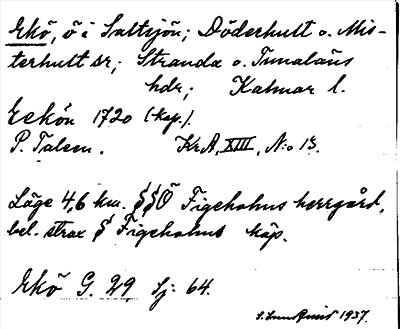 Ekö, ö i Saltsjön; Döderhult o. Mis-
terhult sr; Stranda o. Tunaläns
hdr; Kalmar l.
Eckön 1720 (kop.).
P. Talem. KrA, XIII, N:o 13.
Läge 4,6 km. SSÖ Figeholms herrgård,
bel. strax S Figeholms köp.
Ekö G. 29 Sj: 64.
1937.